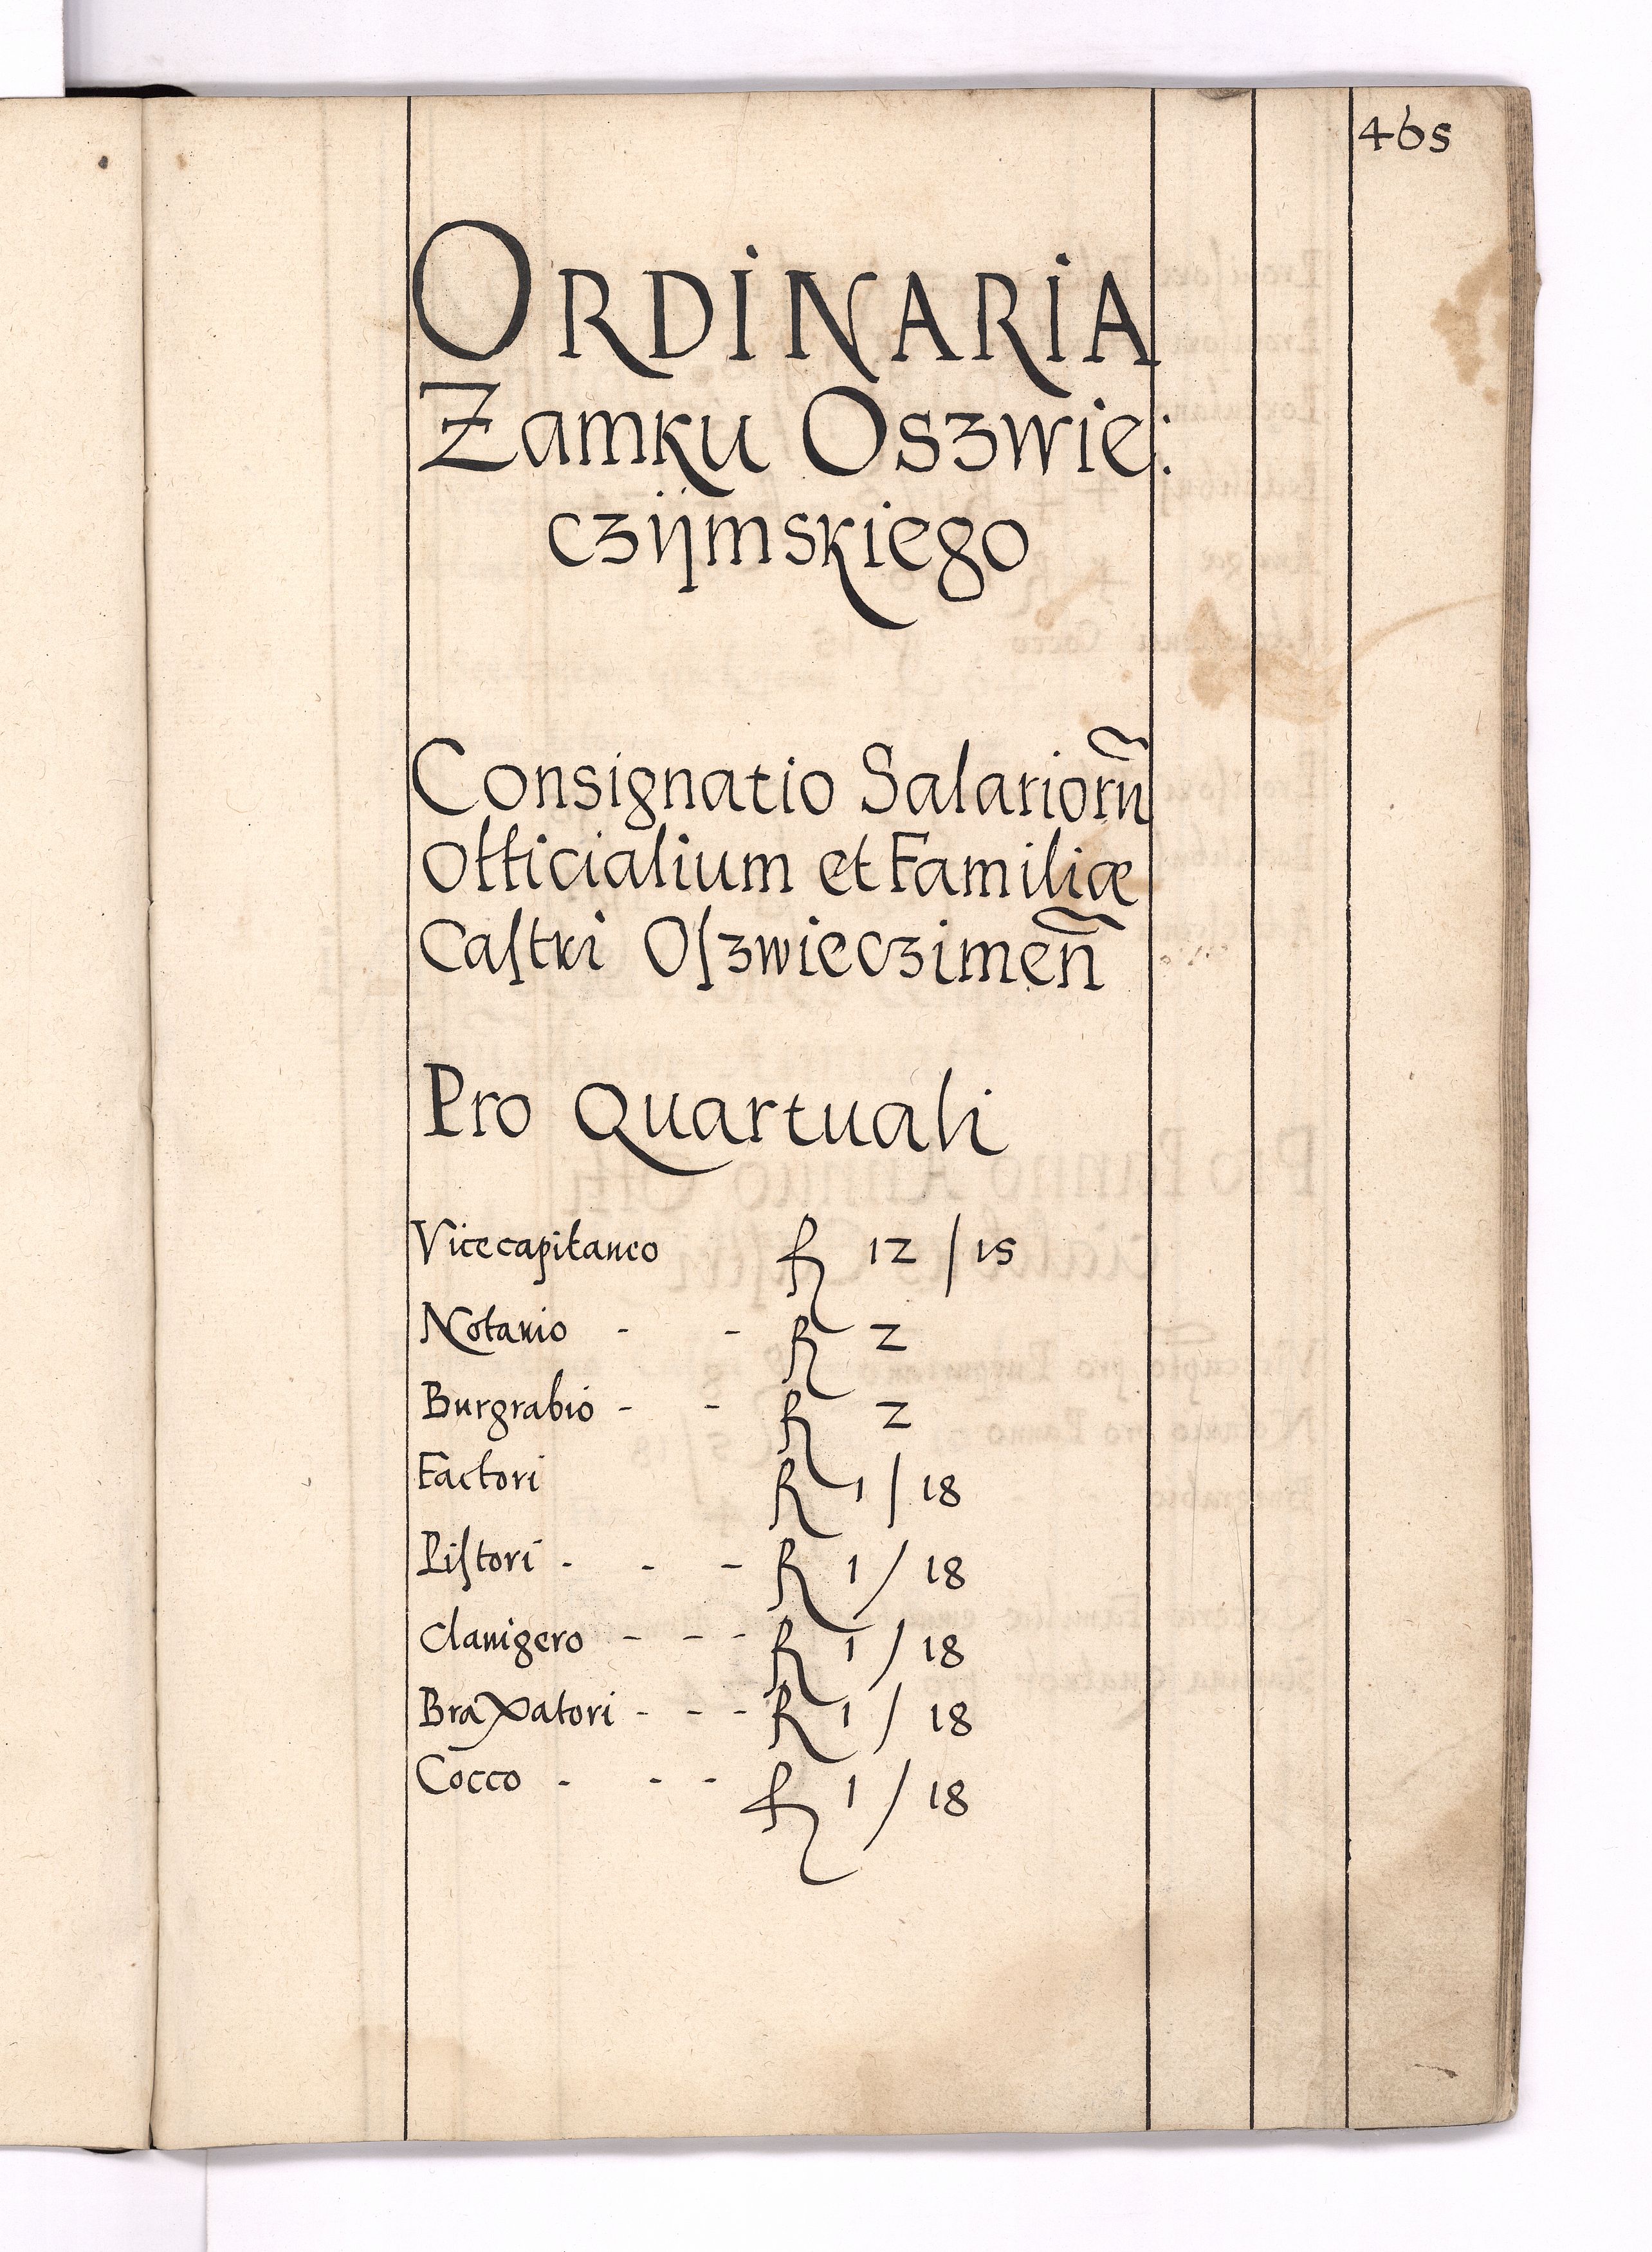 465
ORDINARIA
Zamku Oszwie:
czijmskiego
Consignatio Salariorũ
Officialium et Familiæ
Caſtri Oſzwieczimen̄
Pro Quartuali
Vicecapitaneo fl 12 / 15
Notario - - fl 2
Burgrabio - - fl 2
Factori fl 1 / 18
Piſtori - - - fl 1 / 18
Clauigero - - - fl 1 / 18
Braxatori - - - fl 1 / 18
Cocco - - - fl 1 / 18